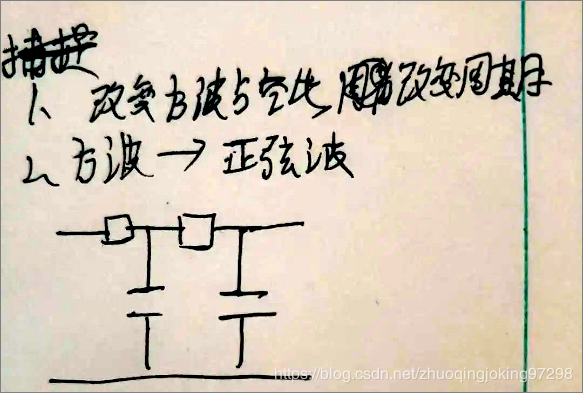 1、改变方波占空比,改变周期
2、方波→正弦波
https://blog.csdn.net/zhuoqingjoking97298